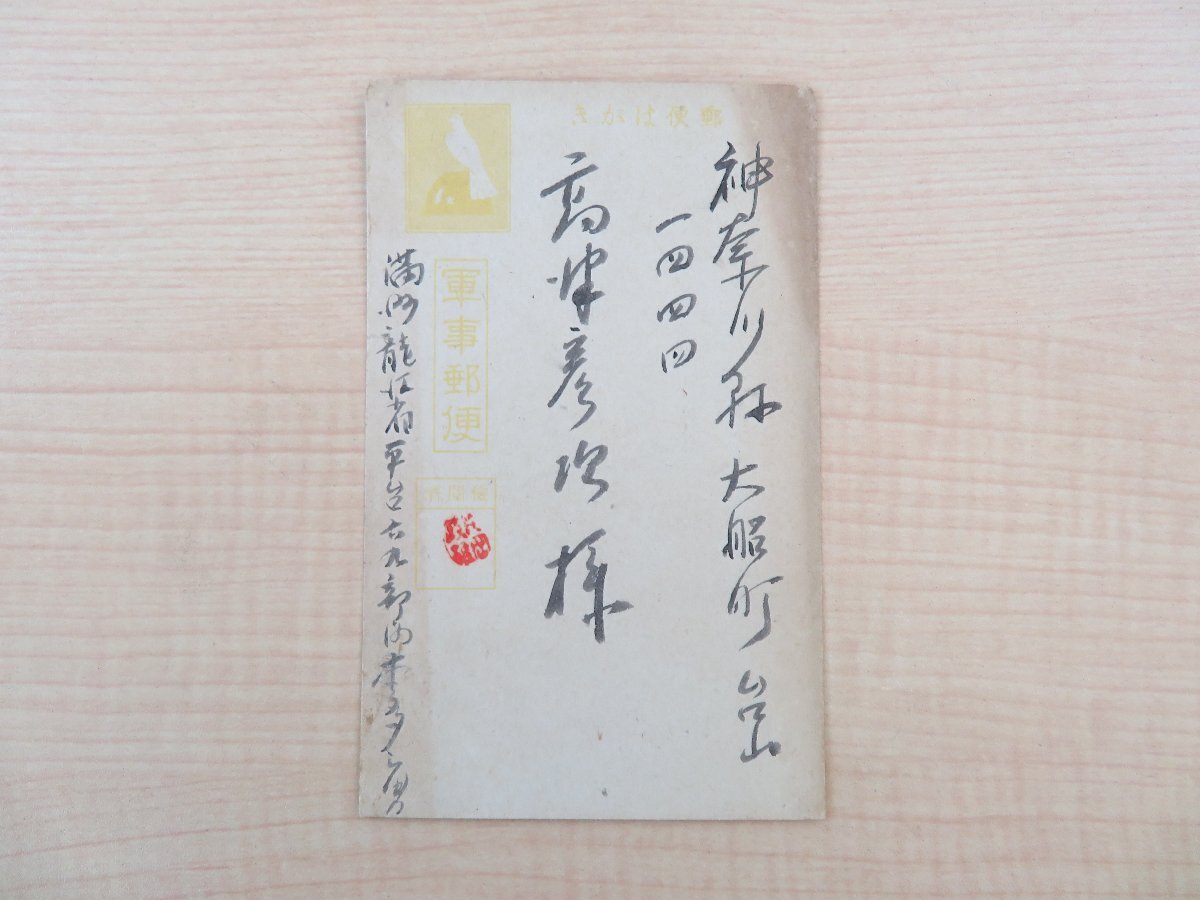 郵便はがき
神奈川県大船町台山
一四四四
高津彦次様
軍事郵便
検閲済
満州龍江省平台六九部内本多